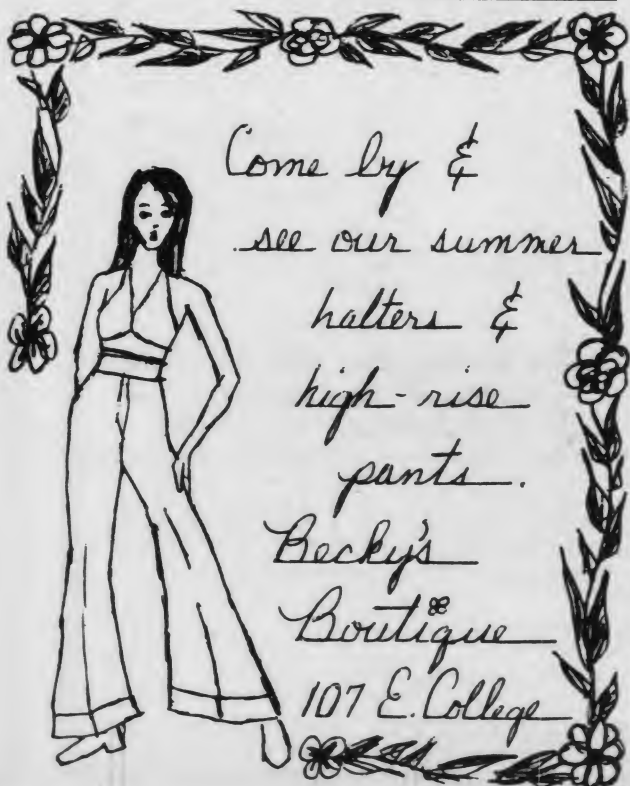 Come by &
see our summer
halters &
high-rise
pants.
Becky's
Boutique
107 E. College